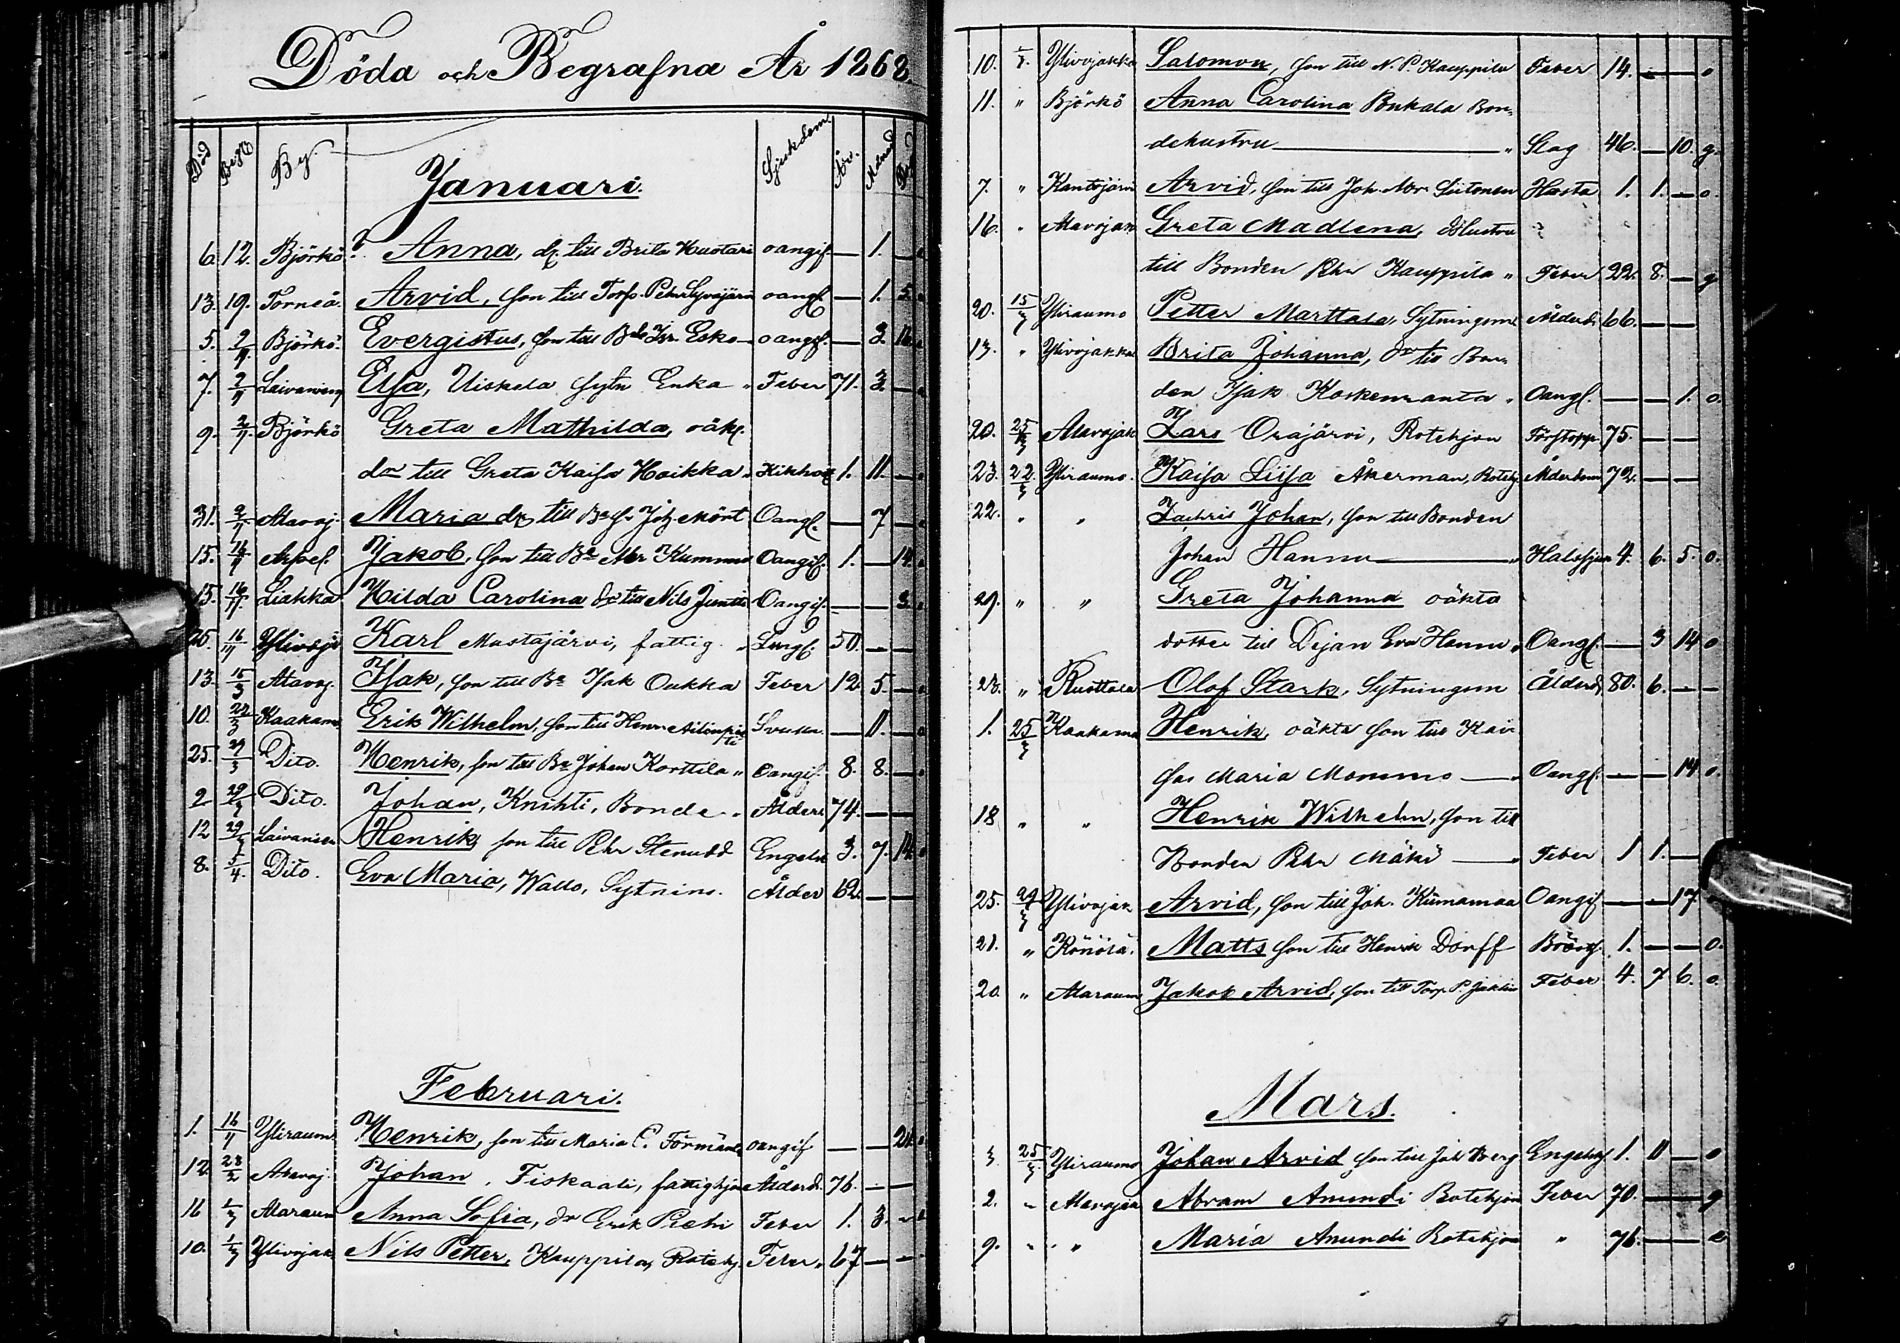 Döda och Begrafna År 1868.
Död Begr By Sjukdom År. Månad
Januari.
6. 12. Björkö Anna, dr till Brita Kustari oangif. — 1. —
13. 19. Torneå. Arvid, son till Torp. Pehr oangf. — 1. 5.
5. 2/4 Björkö. Evergistus, son till Bde Isr. Esko oangf. — 3.
7. 2/4 Elsa, Uiskela Sytn Enka " Feber 71. 3. —
9. 2/4. Björkö Greta Mathilda, oäkt.
dr till Greta Kaisa Hoikka " Kikhost 1. 11. —
31. 2/4 Alavoj. Maria dr till Oangf. — 7 —
15. Jakob, son till Kummu Oangif. 1. — 14.
15. 16/4. Liakka Hilda Carolina dr till Nils Oangif. — — 3.
25. Ylivojak Karl Mustajärvi, fattig. Lungf. 50. —
13. Alavoj. Isak, son till Isak Oukka Feber 12 5. —
10. Kaakama Erik Wilhelm, son till Henr. — 11. —
25. Dito. Henrik, son till Johan Korttila " oangif. 8. 8. —
2 Dito. Johan, Knihti, Bonde " Ålderd 74. — —
12 Laivaniemi Henrik, son till Pehr Stenudd Engelsk 3. 7.
8. 5/4. Dito. Eva Maria, Sytnins. Ålder 62. — —
Februari.
1. 16/4 Yliraum Henrik, son till Maria C. oangif — —
12. Alavoj. Johan, Fiskaali, fattighjon Ålderd. 76. — —
16 Alaraum Anna Sofia, dr Erik Feber 1. 3. —
10. Ylivojak Nils Petter, Kauppila, Rotehj. Feber " 67 — —
10. Ylivojakka Salomon, son till N. P. Kauppila Feber 14. — — o
11. " Björkö Anna Carolina Bukala Bon-
dehustru — " Slag 46. — 10. g.
7. " Kantojärvi Arvid, son till Joh. Hosta 1. 1. — o.
16. " Alavojak Greta Madlena,
till Bonden Pehr Kauppila " Feber 22. 8. — g
20. Yliraumo Petter Marttala, Sytningsm. Ålderd. 66. — —
13. " Ylivojakka Brita Johanna, dr till Bon-
den Isak Koskenranta " Oangf. — — 1. o.
20. Alavojak Lars Orajärvi, Rotehjon 75. — —
23. Yliraumo. Kaisa Liisa Åkerman, Rotehj Ålderdom 72. — —
22. " " Zachris Johan, son till Bonden
Johan Hannu — " Halssjuk 4. 6. 5. o.
29. " " Greta Johanna oäkta
dotter till Pigan Eva Hannu " Oangf. — 3 14 o
23. " Ruottala Olof Stark, Sytningsm Ålderd. 80. 6. — —
1. Kaakama Henrik, oäkta son till Kai-
sas Maria Mommo — " Oangf. — — 14 o.
18 " " Henrik Wilhelm, son till
Bonden Pehr Mäki — " Feber 1 1. —
25. Ylivojak Arvid, son till Joh. Kiimamaa Oangif. — — 17
21. " Könölä. Matts son till Henrik Dorff 1. — — o.
20. " Alaraum Jakob Arvid, son till Torp. P. Feber 4. 7 6. o.
Mars.
3. Yliraumo Johan Arvid son till Joh Berg Engelsksj 1. 11 — o
2. " Alavojak Abram Anundi Rotehjon Feber 70. — — g
9. " " Maria Anundi Rotehjon " 76. — —